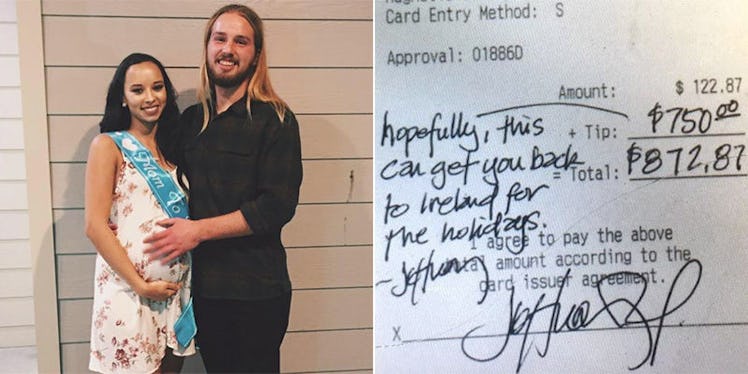 Mom to
Card Entry Method: S
Approval: 01886D
Amount: $ 122.87
+ Tip: $750.00
= Total: $872.87
hopefully, this
can get you back
to Ireland for
the holidays.
I agree to pay the above
amount according to the
card issuer agreement.
X